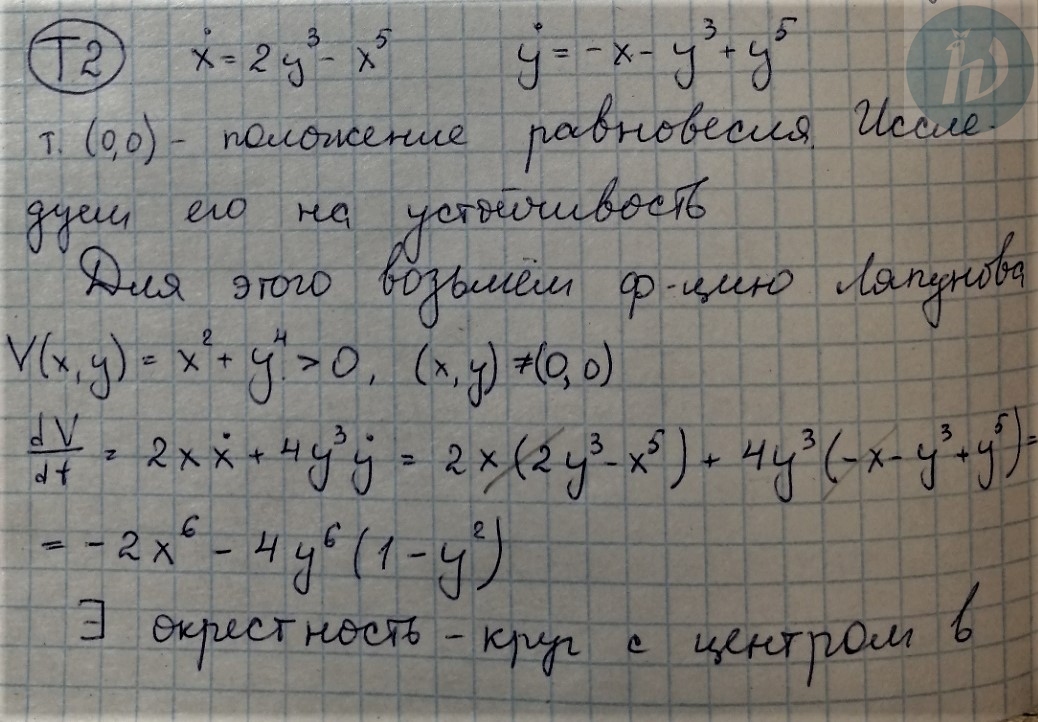 T2 ẋ = 2y³ - x⁵ ẏ = -x - y³ + y⁵
т. (0,0) - положение равновесия. Иссле-
дуем его на устойчивость
Для этого возьмём ф-цию Ляпунова
V(x,y) = x² + y⁴ > 0, (x,y) ≠ (0,0)
dV/dt = 2xẋ + 4y³ẏ = 2x(2y³ - x⁵) + 4y³(-x - y³ + y⁵) =
= -2x⁶ - 4y⁶(1 - y²)
∃ окрестность - круг с центром в